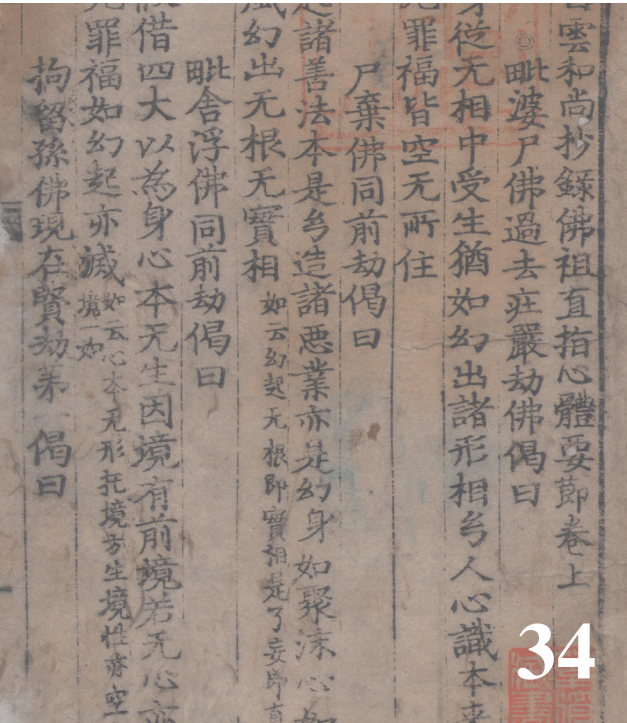 雲和尚抄録佛祖直指心體要莭卷上
毗婆尸佛過去莊嚴劫佛偈曰
身從无相中受生猶如幻出諸形相幻人心識本來
无罪福皆空无所住
尸棄佛同前劫偈曰
起諸善法本是幻造諸惡業亦是幻身如聚沫心如
風幻出无根无實相如云幻起无根即實相是了妄即真
毗舍浮佛同前劫偈曰
假借四大以為身心本无生因境有前境若无心亦
无罪福如幻起亦滅如云心本无形托境方生境性亦空
境一如
拘留孫佛現在賢劫苐一偈曰
34